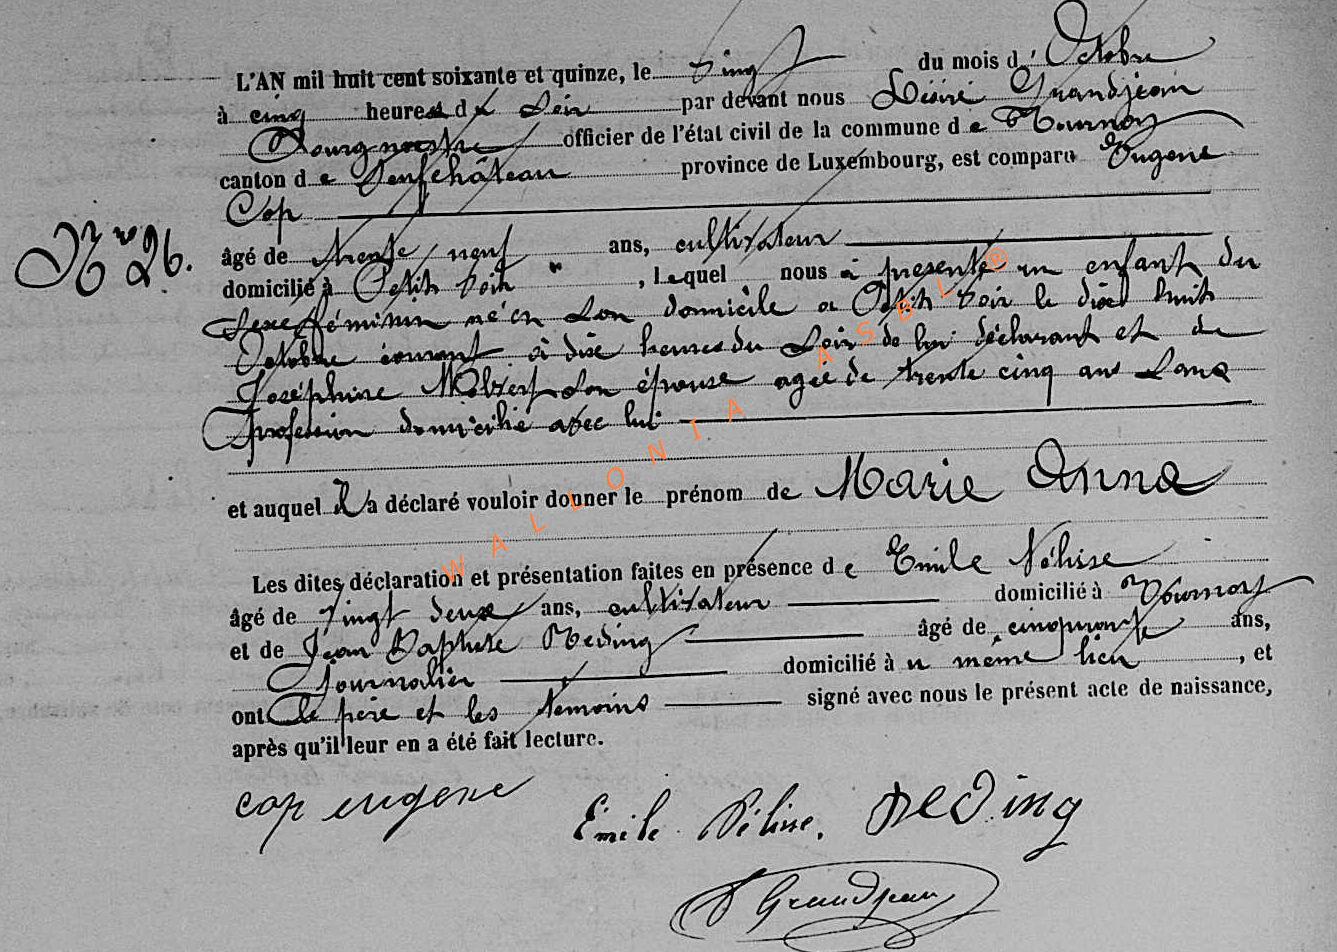 L'AN mil huit cent soixante et quinze, le vingt du mois d' Octobre
à cinq heures du soir par devant nous Désiré Grandjean
Bourgmestre officier de l'état civil de la commune de Tournay
canton de Neufchâteau province de Luxembourg, est comparu Eugene
Cop
Nro 26.
âgé de trente neuf ans, cultivateur
domicilié à Petit Voir, Lequel nous a presenté un enfant du
sexe féminin né en son domicile a Petit Voir le dixe huit
Octobre courant à dixe heures du soir de lui déclarant et de
Joséphine son épouse agée de trente cinq ans sans
profession domicilié avec lui
et auquel Il a déclaré vouloir donner le prénom de Marie Anna
Les dites déclaration et présentation faites en présence de Emile Péhise
âgé de vingt deux ans, cultivateur domicilié à Tournay
et de Jean Baptiste Reding âgé de cinquante ans,
journalier domicilié à u même lieu, et
ont le père et les témoins signé avec nous le présent acte de naissance,
après qu'il leur en a été fait lecture.
cop eugene
Emile Reding
D Grandjean
WALLONIA ASBL @